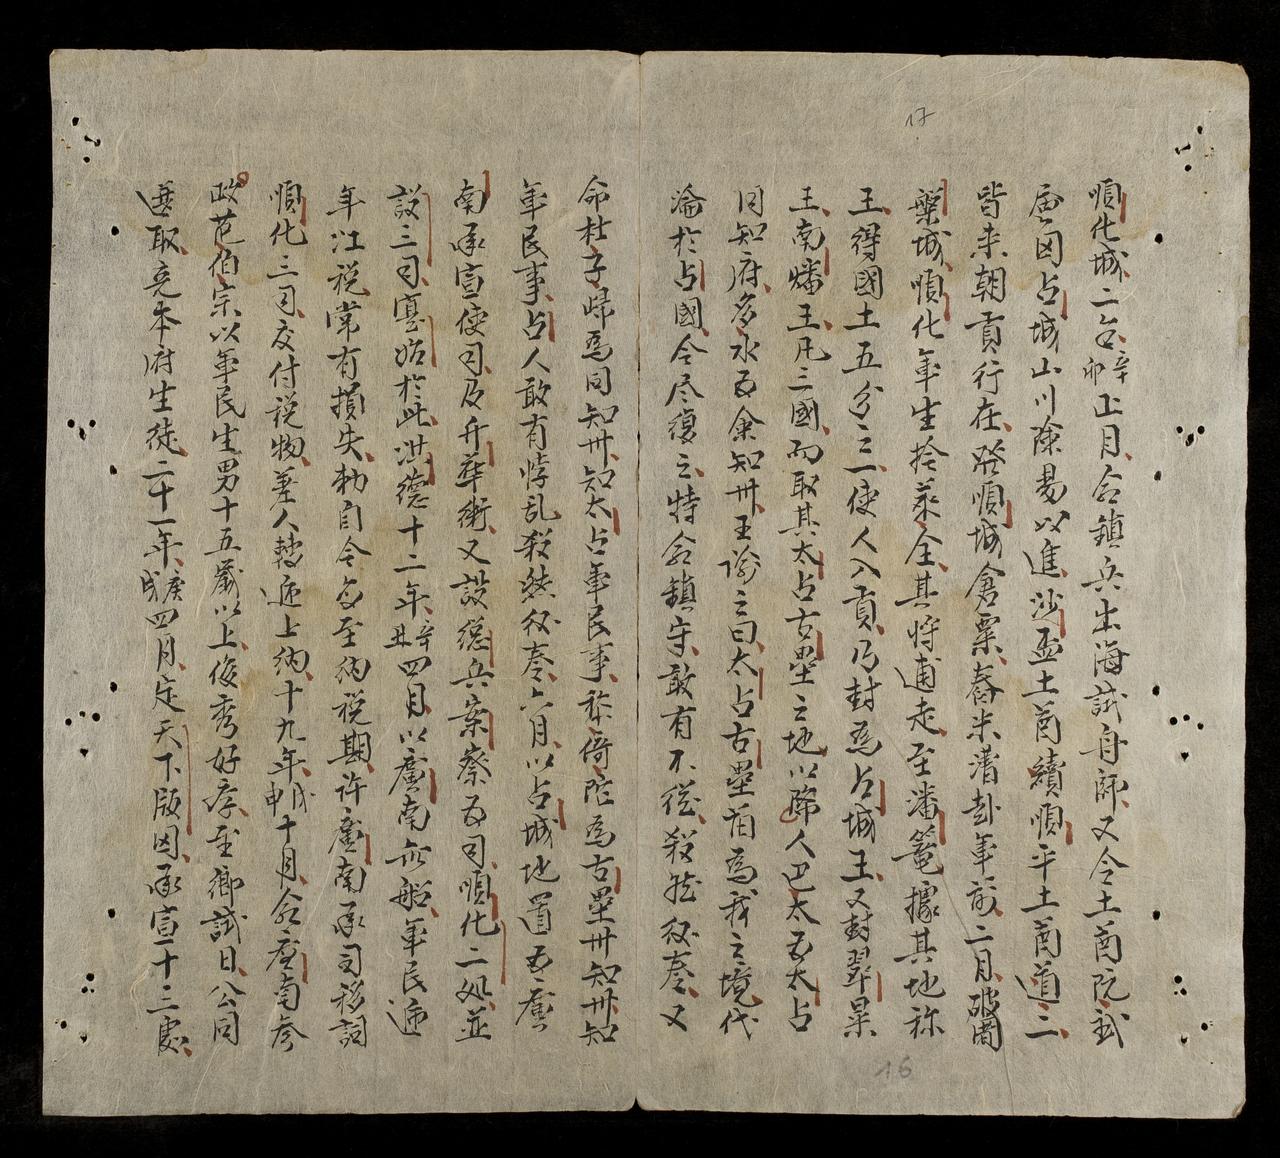 17
順化城二台辛卯正月命鎮兵出海試身師又令土酋阮武
畐図占城山川險易以進沙盃土酋續順平土酋道二
皆来朝貢行在発順城倉粟舂米潸卦軍前二月破闍
槃城順化軍生擒茶全其将逋走至潘篭據其地称
王得國土五分之一使人入貢乃封為占城王又封華杲
王南蟠王凡三國而取其太占古壘之地以降人巴太為太占
同知府多水為僉知州王諭之曰太占古壘旧為我之境代
淪於占國今尽復之特命鎮守敢有不從殺然後奏又
命杜子歸為同知州知太占軍民事黎倚陀為古壘州知州知
軍民事占人敢有悖乱殺然後奏六月以占城地置為廣
南承宣使司及升華衛又設總兵案察為司順化二処並
設三司寔始於此洪德十二年辛丑四月以廣南無船軍民逓
年江税常有損失勅自今每至納税期許廣南承司移詞
順化三司交付税物差人轉逓上納十九年戊申十月命廣南參
政范伯宗以軍民生男十五歲以上俊秀好孝至鄉試日公同
選取充本府生徒二十一年庚戌四月定天下版図承宣十三處
16